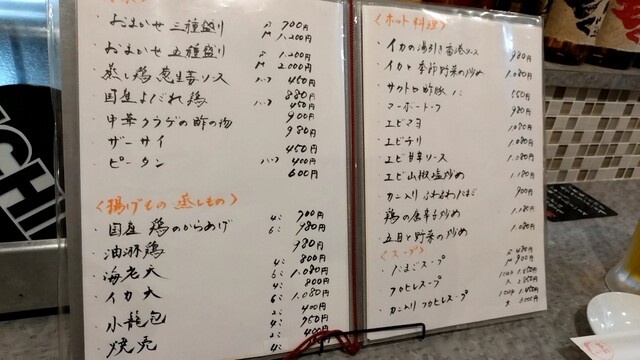 ・おまかせ 三種盛り P 700円
M 1,200円
・おまかせ 五種盛り P 1,200円
M 2,000円
・蒸し鶏 葱生姜ソース ハーフ 450円
880円
・国産よだれ鶏 ハーフ 450円
900円
・中華クラゲの酢の物 980円
・ザーサイ 450円
・ピータン ハーフ 400円
600円
〈揚げもの 蒸しもの〉
・国産 鶏のからあげ 4コ 700円
6コ 980円
・油淋鶏 980円
・海老天 4コ 800円
6コ 1,080円
・イカ天 4コ 800円
6コ 1,080円
・小籠包 2コ 400円
4コ 750円
・焼売 2コ 400円
4コ
〈ホット料理〉
・イカの湯引き香港ソース 980円
・イカと季節野菜の炒め 1,080円
・サクトロ酢豚 1コ 550円
・マーボードーフ 980円
・エビマヨ 1,080円
・エビチリ 1,080円
・エビ甘辛ソース 1,080円
・エビ山椒塩炒め 1,180円
・カニ入りふわふわたまご 900円
・鶏の唐辛子炒め 1,180円
・五目と野菜の炒め 1,080円
〈スープ〉
・たまごスープ P 480円
M 900円
・フカヒレスープ
・カニ入りフカヒレスープ